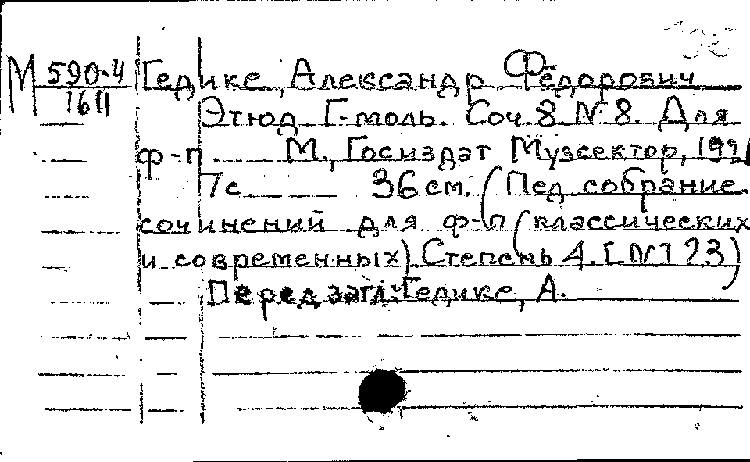 М 590-4 Гедике, Александр Фёдорович
1611 Этюд Г-моль. Соч 8 № 8. Для
ф-п. М., Госиздат Музсектор,
7с 36 см. (Пед собрание
сочинений для ф-п (классических
и современных) Степень 4. [№123)
Перед загл: Гедике, А.